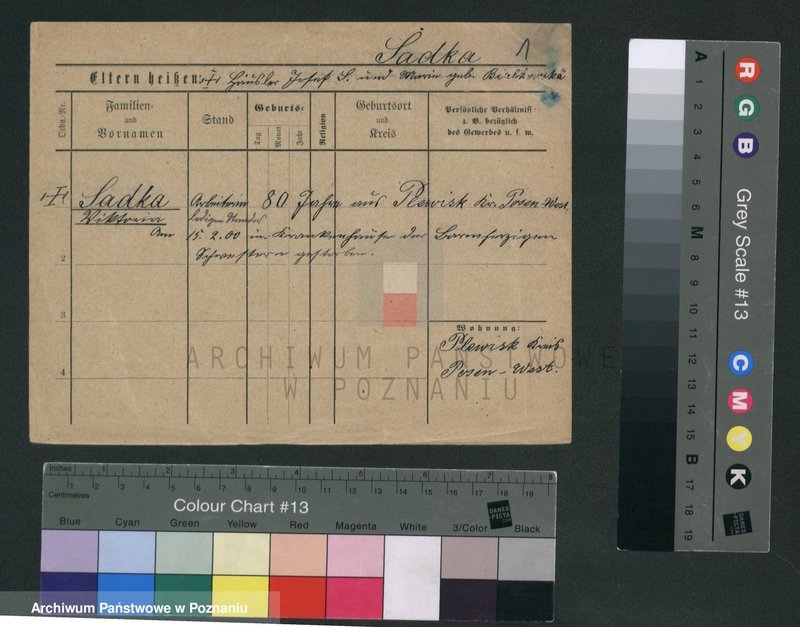 Sadka 1
Eltern heißen: Häusler Josef S. und Maria geb.
Ordn.-Nr.
Familien-
und
Vornamen
Stand
Geburts-
Tag
Monat
Jahr
Religion
Geburtsort
und
Kreis
Persönliche Verhältniss
z. B. bezüglich
des Gewerbes u. s. w.
Sadka Arbeiterin 80 Jahre aus Plewisk Kr. Posen-West
Viktoria ledigen Standes
Am 15.2.00 im Krankenhause der Barmherzigen
Schwestern gestorben.
2
3
4
Wohnung:
Plewisk Kreis
Posen-West.
ARCHIWUM PAŃSTWOWE
W POZNANIU
Inches 1 2 3 4 5 6 7 8
Centimetres 1 2 3 4 5 6 7 8 9 10 11 12 13 14 15 16 17 18 19
Colour Chart #13
DANES
PICTA
Blue Cyan Green Yellow Red Magenta White 3/Color Black
Archiwum Państwowe w Poznaniu
R G B
Grey Scale #13
C M Y K
A 1 2 3 4 5 6 M 8 9 10 11 12 13 14 15 B 17 18 19
DANES
PICTA